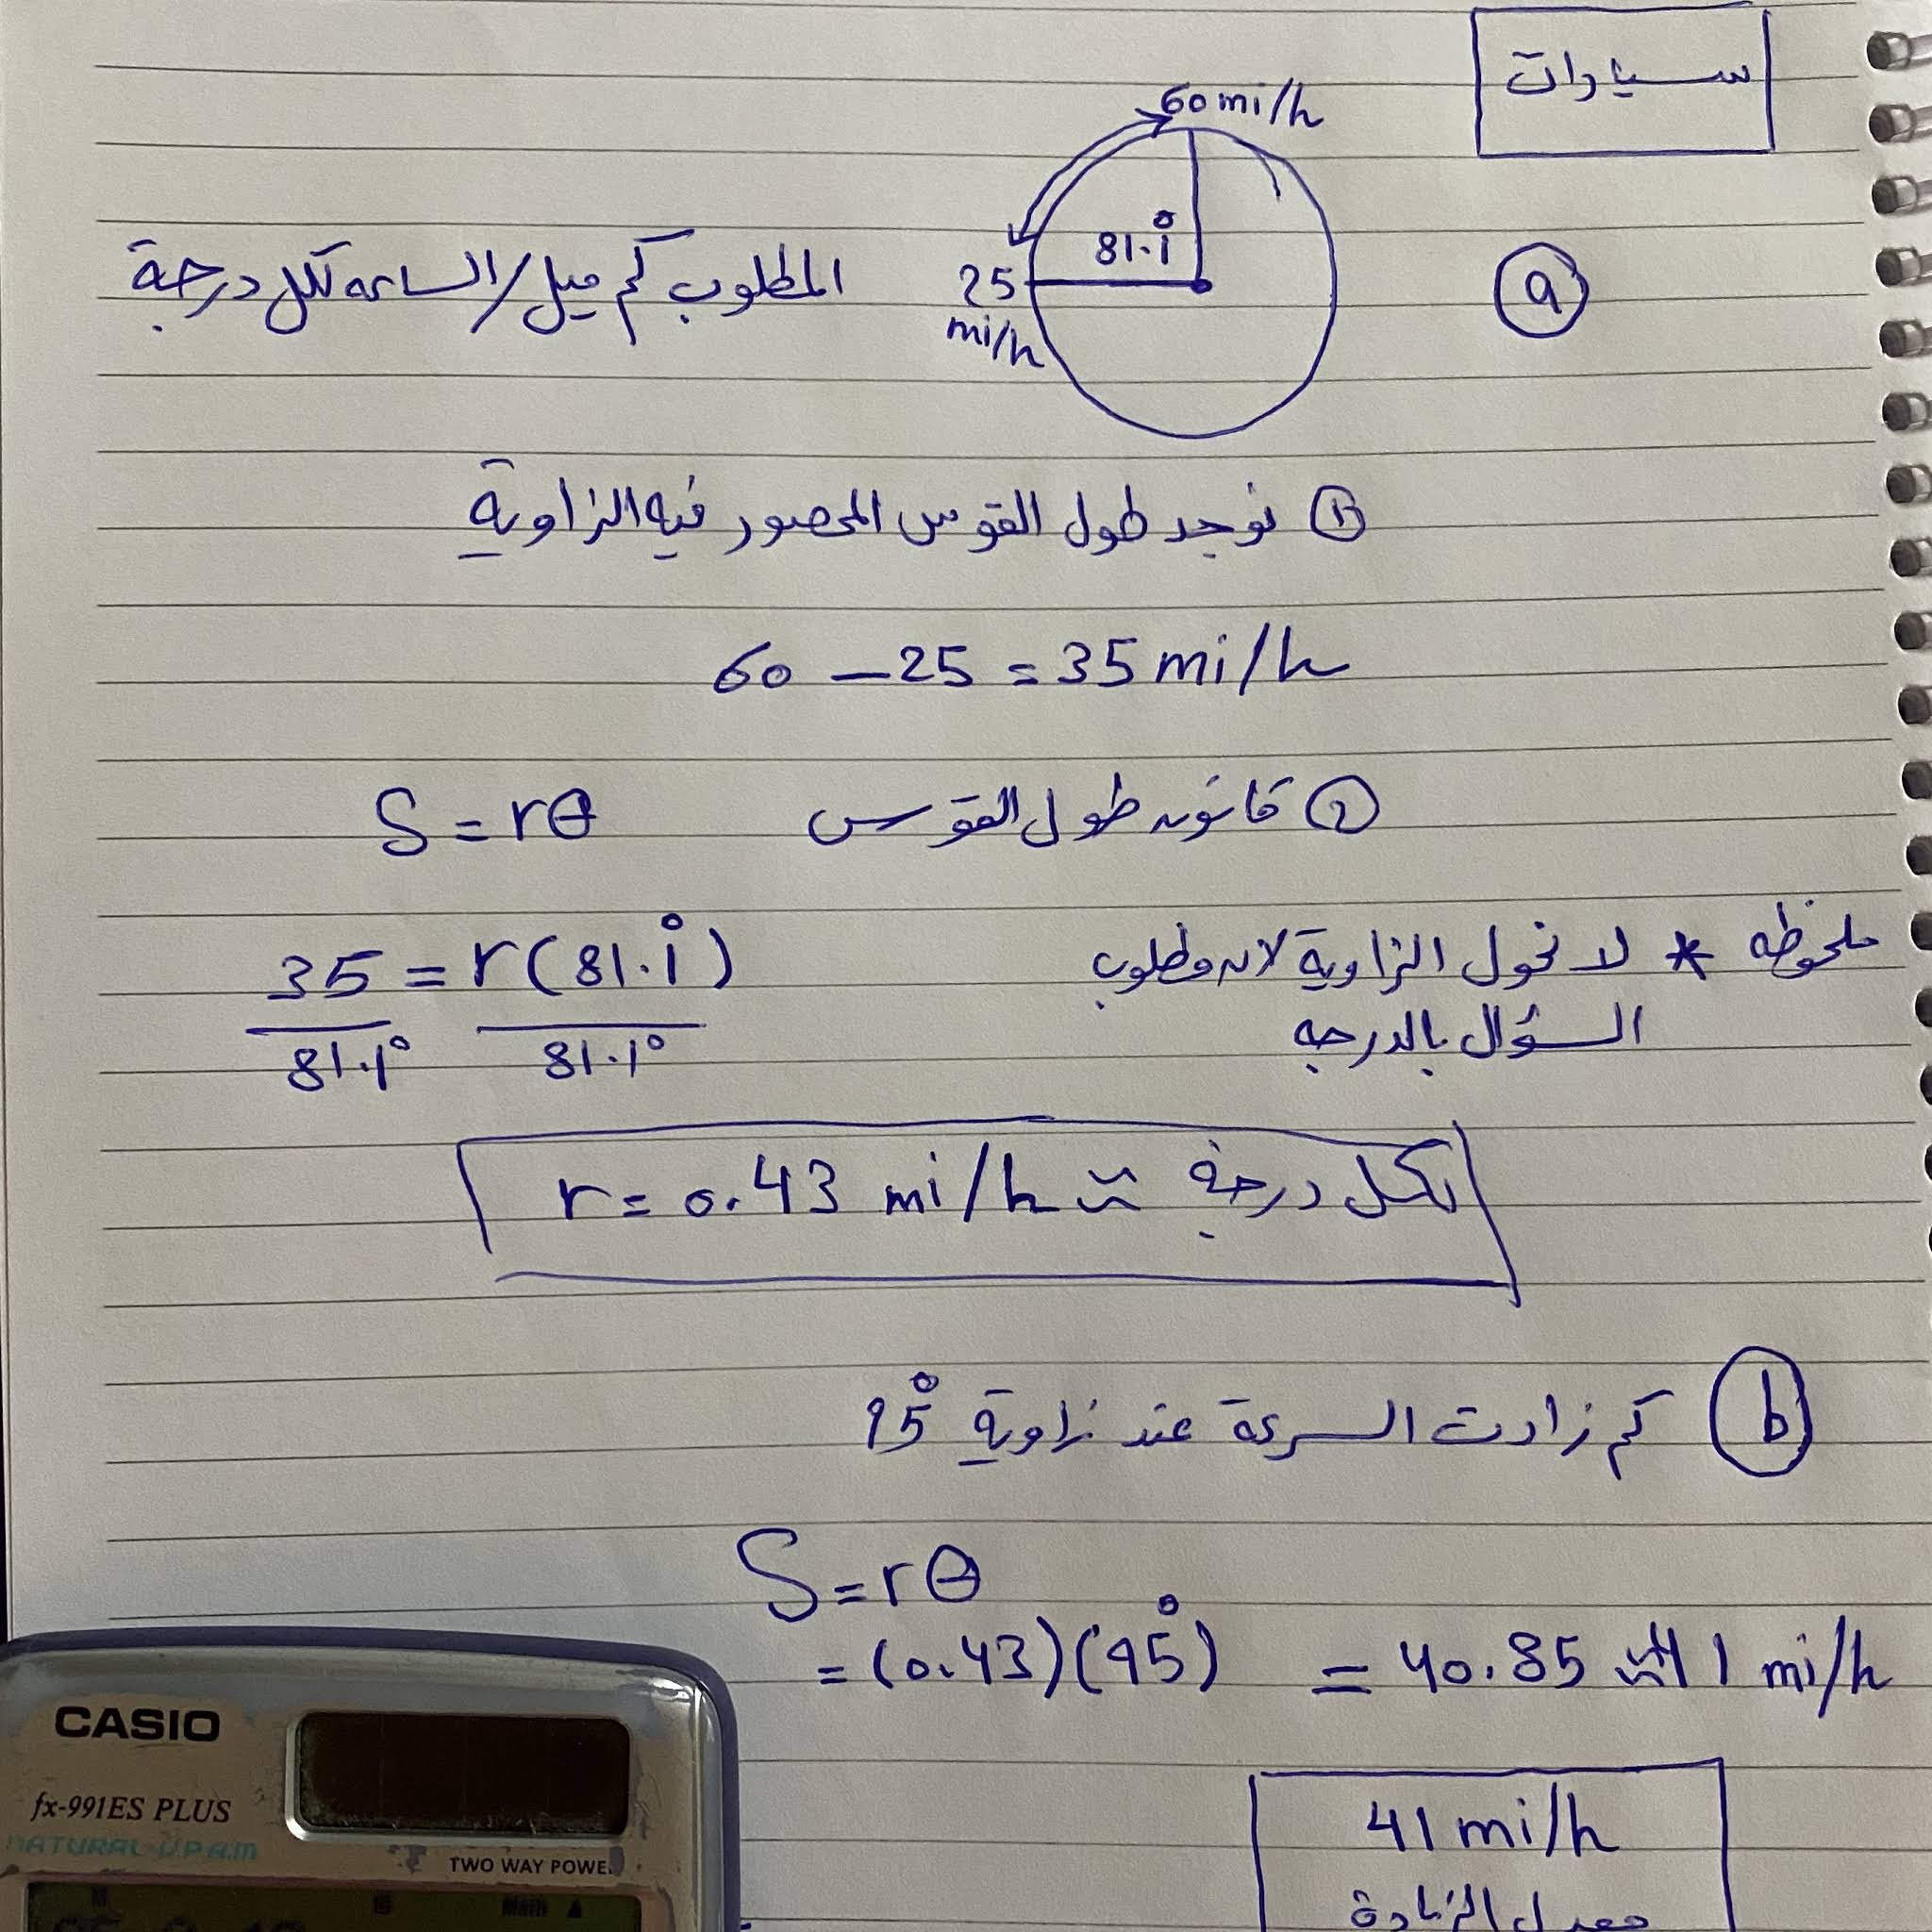 سيارات
60 mi/h
81.1°
25 mi/h
المطلوب كم ميل/الساعه لكل درجة
a
① نوجد طول القوس المحصور فيه الزاوية
60 – 25 = 35 mi/h
② قانون طول القوس S = rθ
ملحوظه * لا نحول الزاوية لان مطلوب
السؤال بالدرجه
35 = r(81.1°)
81.1° 81.1°
r = 0.43 mi/h ≈ لكل درجة
b كم زادت السرعة عند زاوية 95°
S = rθ
= (0.43)(95°) = 40.85 ≈ 41 mi/h
41 mi/h
معدل الزيادة
CASIO
fx-991ES PLUS
NATURAL-V.P.A.M.
TWO WAY POWER
Math ▲